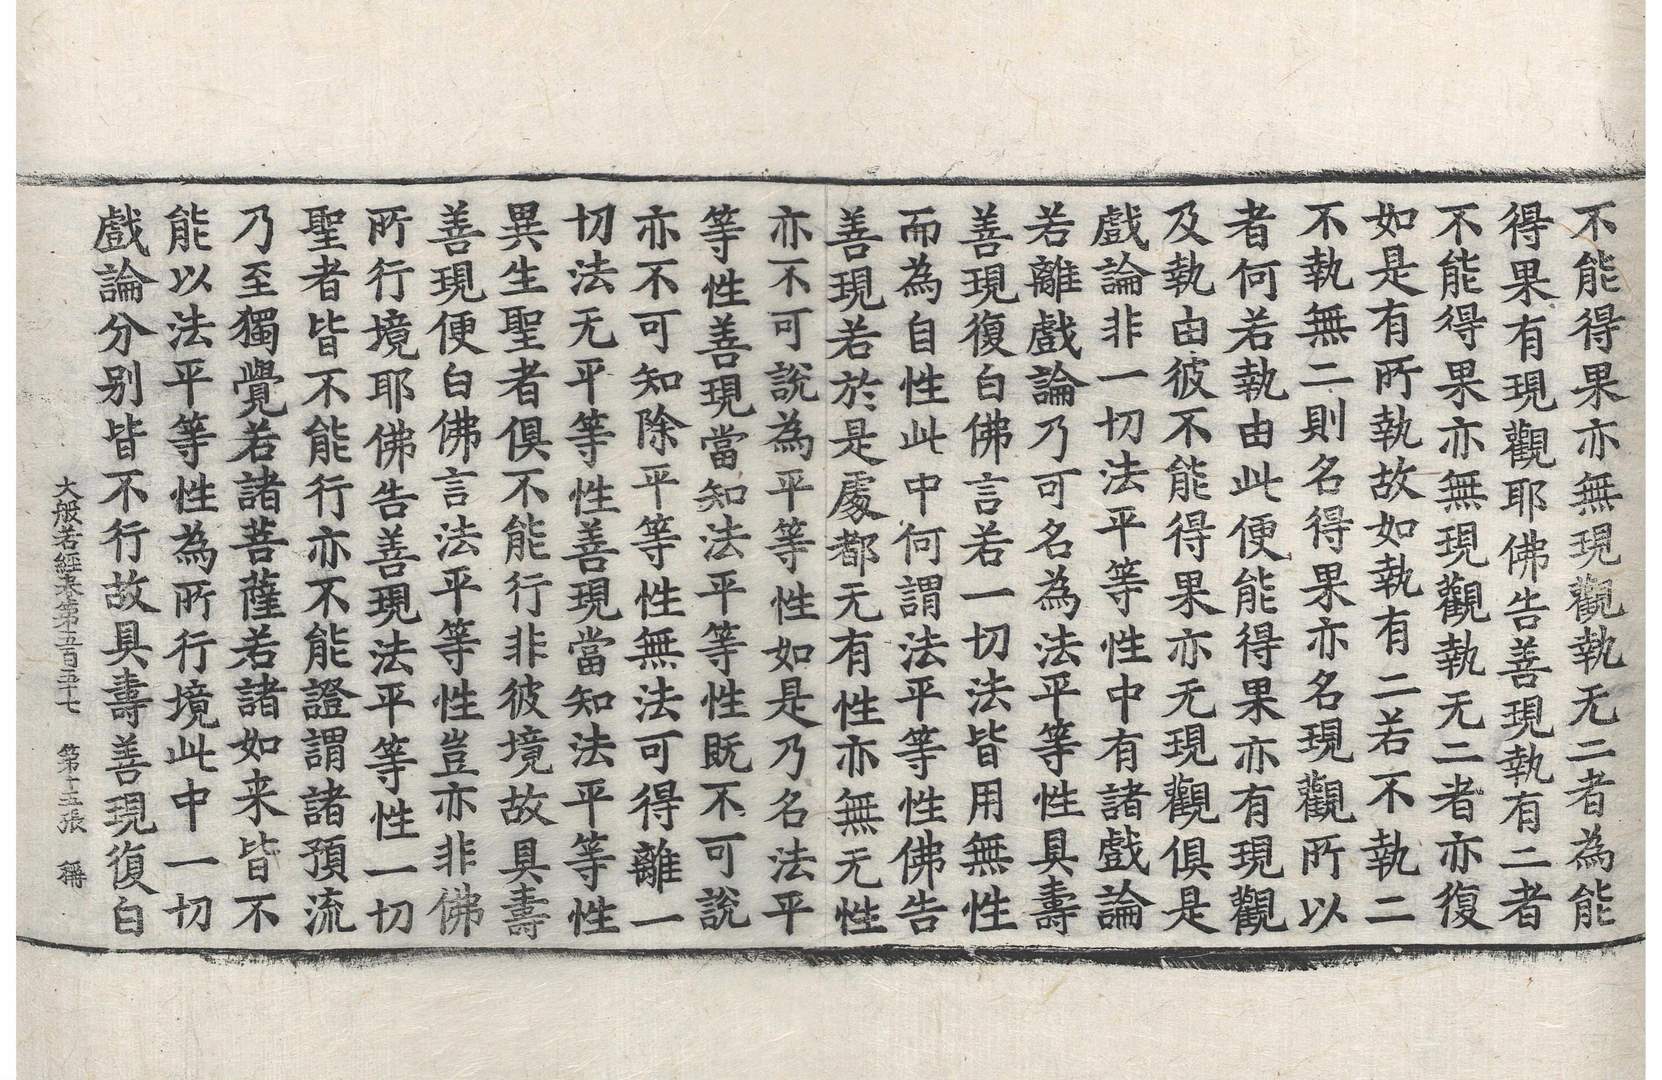 不能得果亦無現觀執无二者為能
得果有現觀耶佛告善現執有二者
不能得果亦無現觀執无二者亦復
如是有所執故如執有二若不執二
不執無二則名得果亦名現觀所以
者何若執由此便能得果亦有現觀
及執由彼不能得果亦无現觀俱是
戲論非一切法平等性中有諸戲論
若離戲論乃可名為法平等性具壽
善現復白佛言若一切法皆用無性
而為自性此中何謂法平等性佛告
善現若於是處都无有性亦無无性
亦不可說為平等性如是乃名法平
等性善現當知法平等性既不可說
亦不可知除平等性無法可得離一
切法无平等性善現當知法平等性
異生聖者俱不能行非彼境故具壽
善現便白佛言法平等性豈亦非佛
所行境耶佛告善現法平等性一切
聖者皆不能行亦不能證謂諸預流
乃至獨覺若諸菩薩若諸如来皆不
能以法平等性為所行境此中一切
戲論分別皆不行故具壽善現復白
大般若經卷第五百十七 第十五張